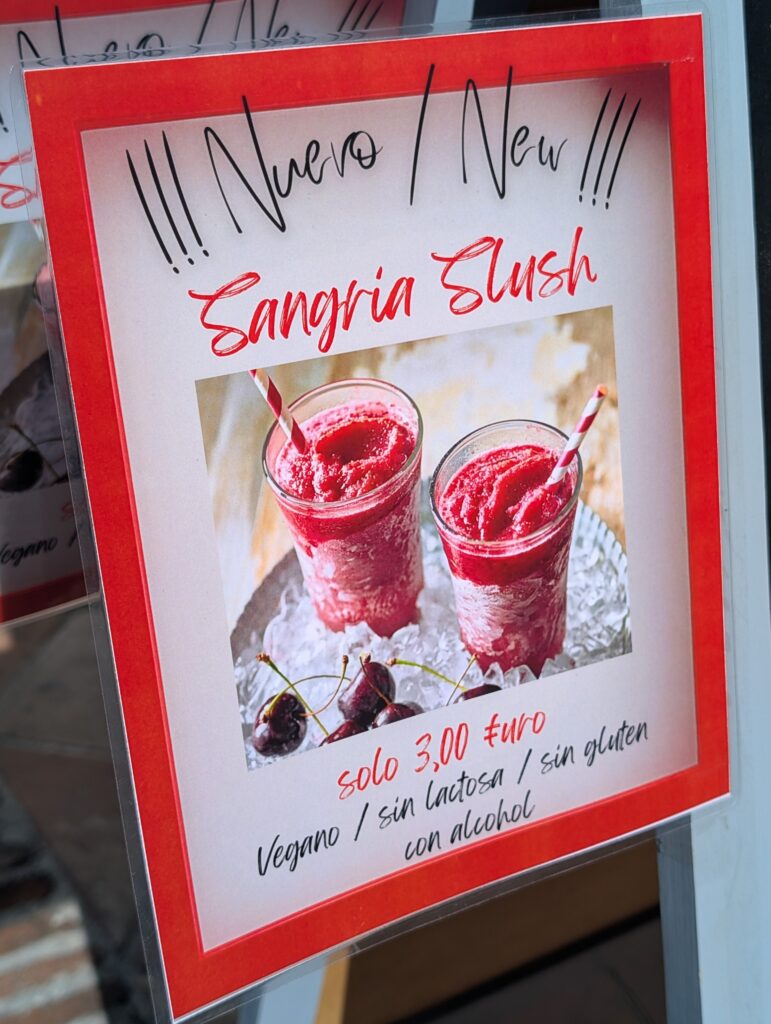 !!! Nuevo / New !!!
Sangria Slush
solo 3,00 €uro
Vegano / sin lactosa / sin gluten
con alcohol
Vegano /